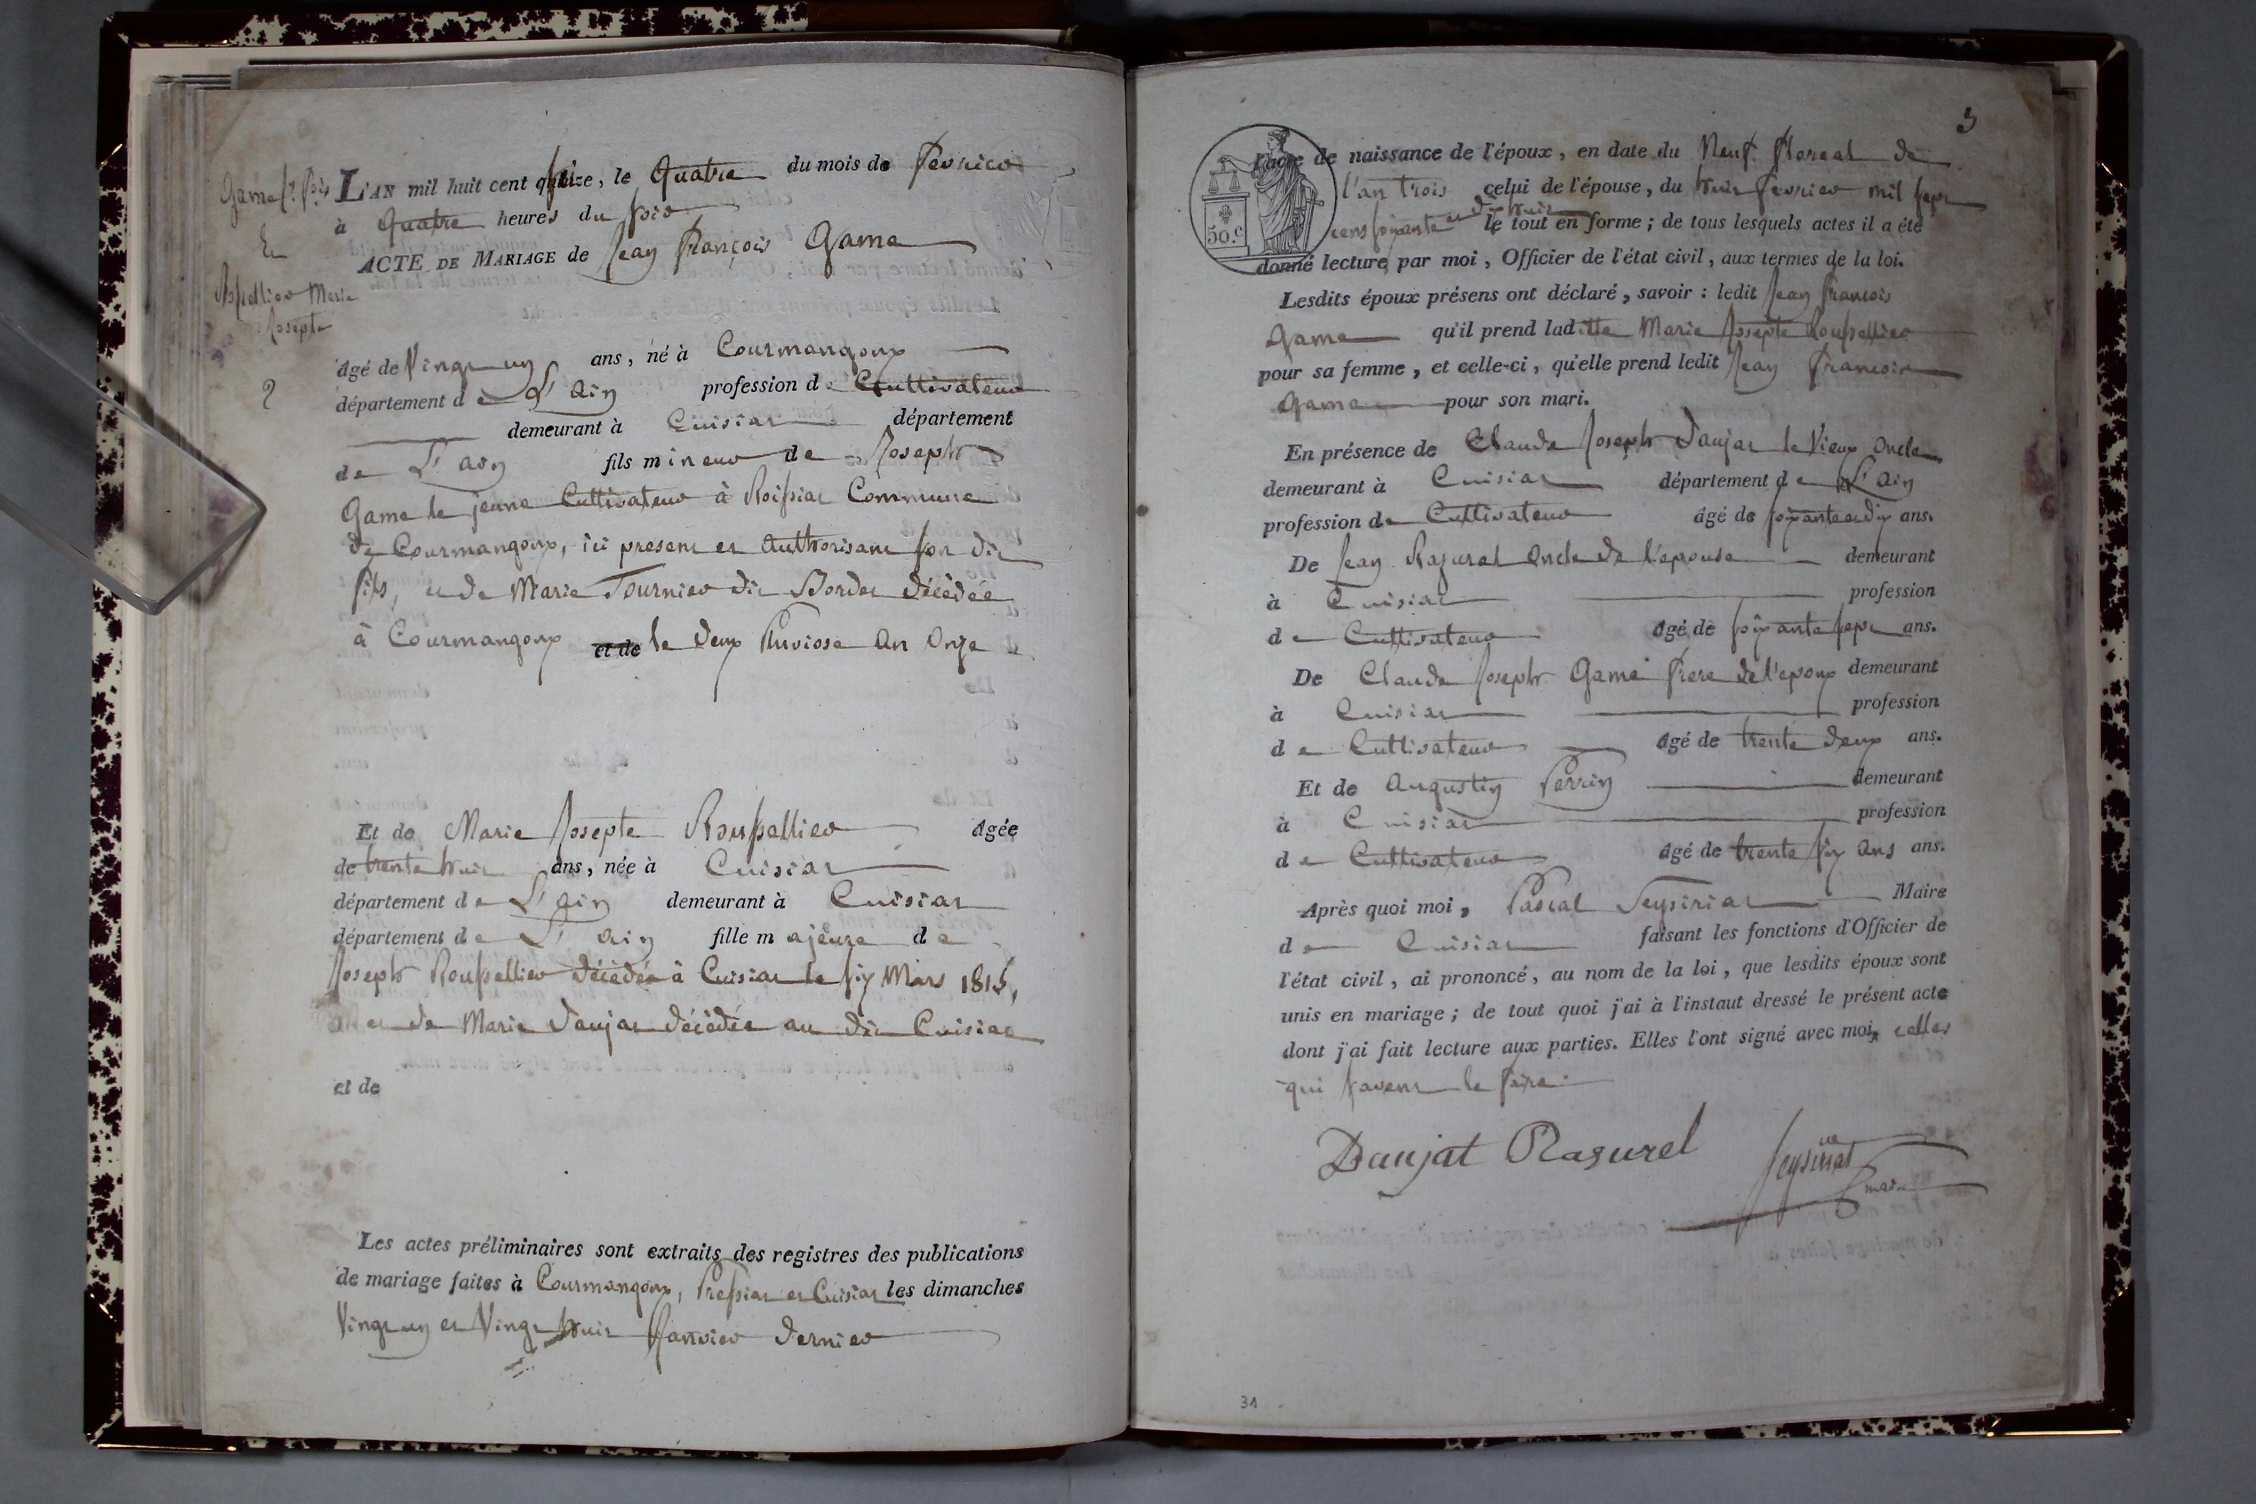 Game J.n f.ois
L'AN mil huit cent seize, le Quatre du mois de Fevrier
à Quatre heures du soir
Et
ACTE DE MARIAGE de Jean François Game
Roussellier Marie
Josepte
agé de Vingt un ans, né à Courmangoux
2
département de L'ain profession de Cultivateur
demeurant à Cuisiat département
de L'ain fils mineur de Joseph
Game le jeune Cultivateur à Roissiat Commune
de Courmangoux, ici present et authorisant son dit
fils, et de Marie Tournier dit Bordet décèdée
à Courmangoux et de le deux Pluviose an onze
Et de Marie Josepte Roussellier agée
de trente huit ans, née à Cuisiat
département de L'ain demeurant à Cuisiat
département de L'ain fille majeure de
Joseph Roussellier décèdée à Cuisiat le six Mars 1815,
et de Marie Daujat décèdée au dit Cuisiat
et de
Les actes préliminaires sont extraits des registres des publications
de mariage faites à Courmangoux, Pressiat et Cuisiat les dimanches
Vingt un et Vingt huit Janvier dernier
3
l'acte de naissance de l'époux, en date du Neuf floreal de
l'an trois celui de l'épouse, du huit fevrier mil sept
cens soixante et dix huit le tout en forme ; de tous lesquels actes il a été
50.c
donné lecture par moi, Officier de l'état civil, aux termes de la loi.
Lesdits époux présens ont déclaré, savoir : ledit Jean françois
Game qu'il prend laditte Marie Josepte Roussellier
pour sa femme, et celle-ci, qu'elle prend ledit Jean François
Game pour son mari.
En présence de Claude Joseph Daujat le Vieux oncle
demeurant à Cuisiat département de L'ain
profession de Cultivateur âgé de soixante et dix ans.
De Jean Razurel oncle de l'epouse demeurant
à Cuisiat profession
de Cultivateur agé de soixante sept ans.
De Claude Joseph Game frere de l'epoux demeurant
à Cuisiat profession
de Cultivateur agé de trente deux ans.
Et de Augustin Perrin demeurant
à Cuisiat profession
de Cultivateur agé de trente six ans ans.
Après quoi moi, Pascal Seysiriat Maire
de Cuisiat faisant les fonctions d'Officier de
l'état civil, ai prononcé, au nom de la loi, que lesdits époux sont
unis en mariage ; de tout quoi j'ai à l'instant dressé le présent acte
dont j'ai fait lecture aux parties. Elles l'ont signé avec moi, celles
qui savent le faire.
Daujat Razurel Seysiriat
maire
31